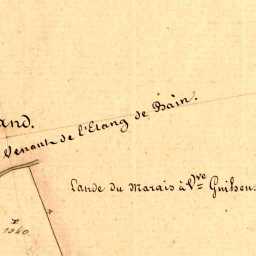 and.
Venant de l'Etang de Bain.
Lande du Marais à Vve Guiheu
1340